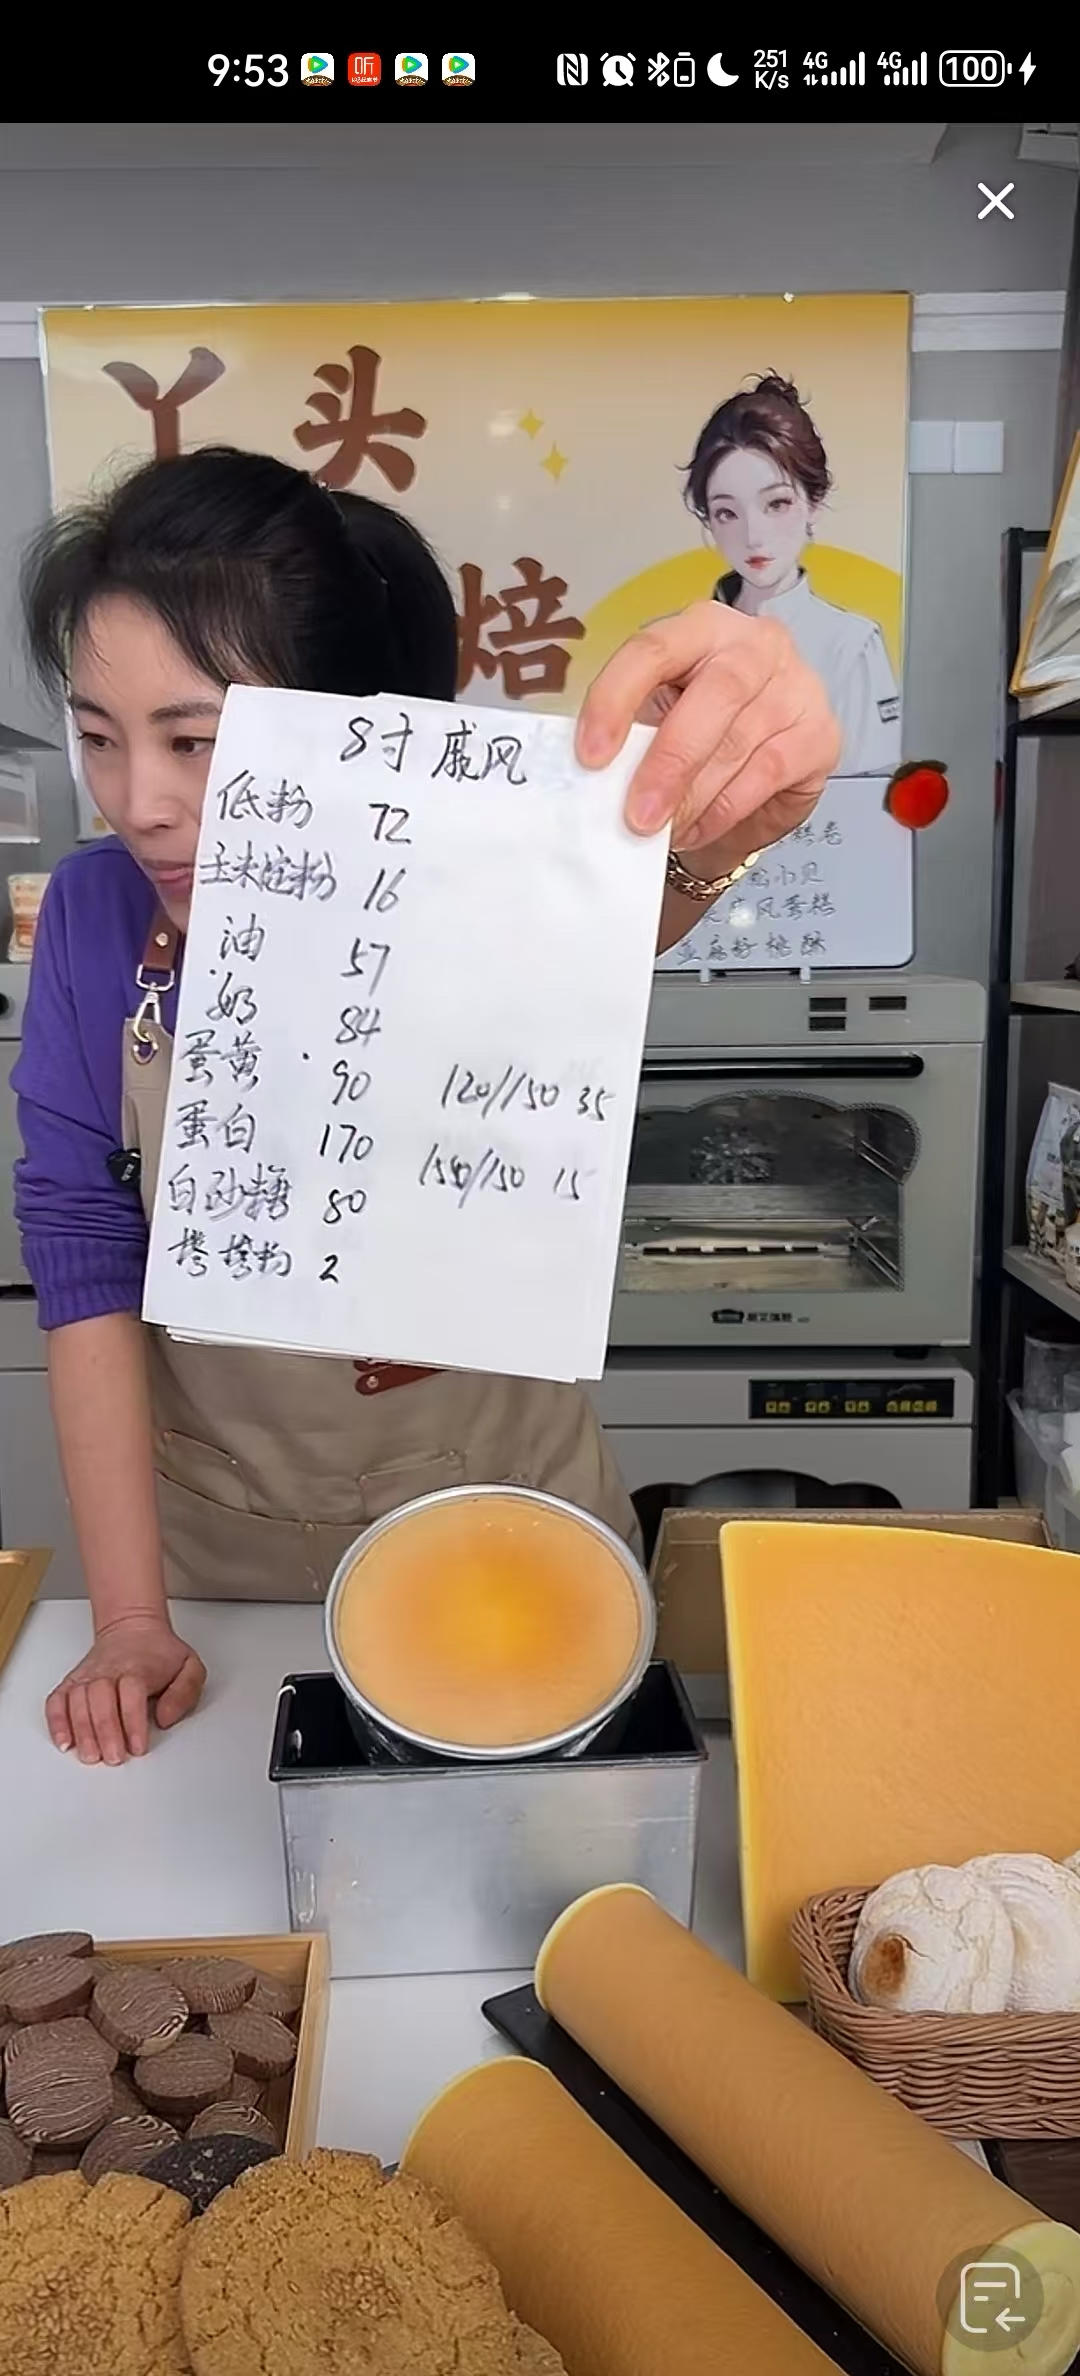 9:53
听
251
K/s
4G
4G
100
丫头
焙
8寸 戚风
低粉 72
玉米淀粉 16
油 57
奶 84
蛋黄 90
蛋白 170
白砂糖 80
塔塔粉 2
120/150 35
150/150 15
风蛋糕
桃酥